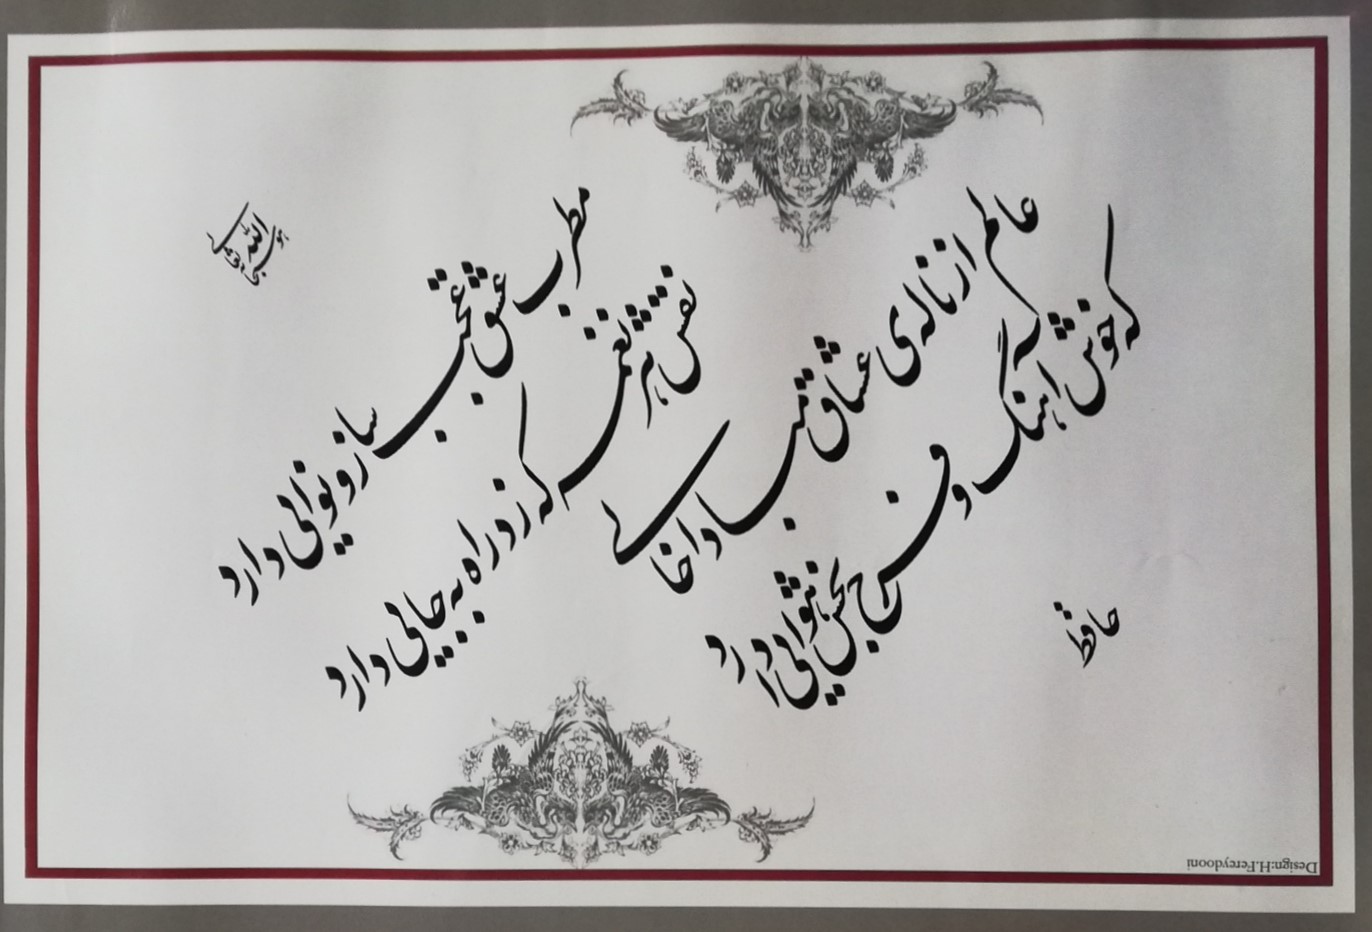 مطرب عشق عجب ساز و نوایی دارد
نقش هر نغمه که زد راه به جایی دارد
عالم از ناله‌ی عشاق مبادا خالی
که خوش آهنگ و فرح بخش هوایی دارد
حافظ
Design:H.Fereydooni